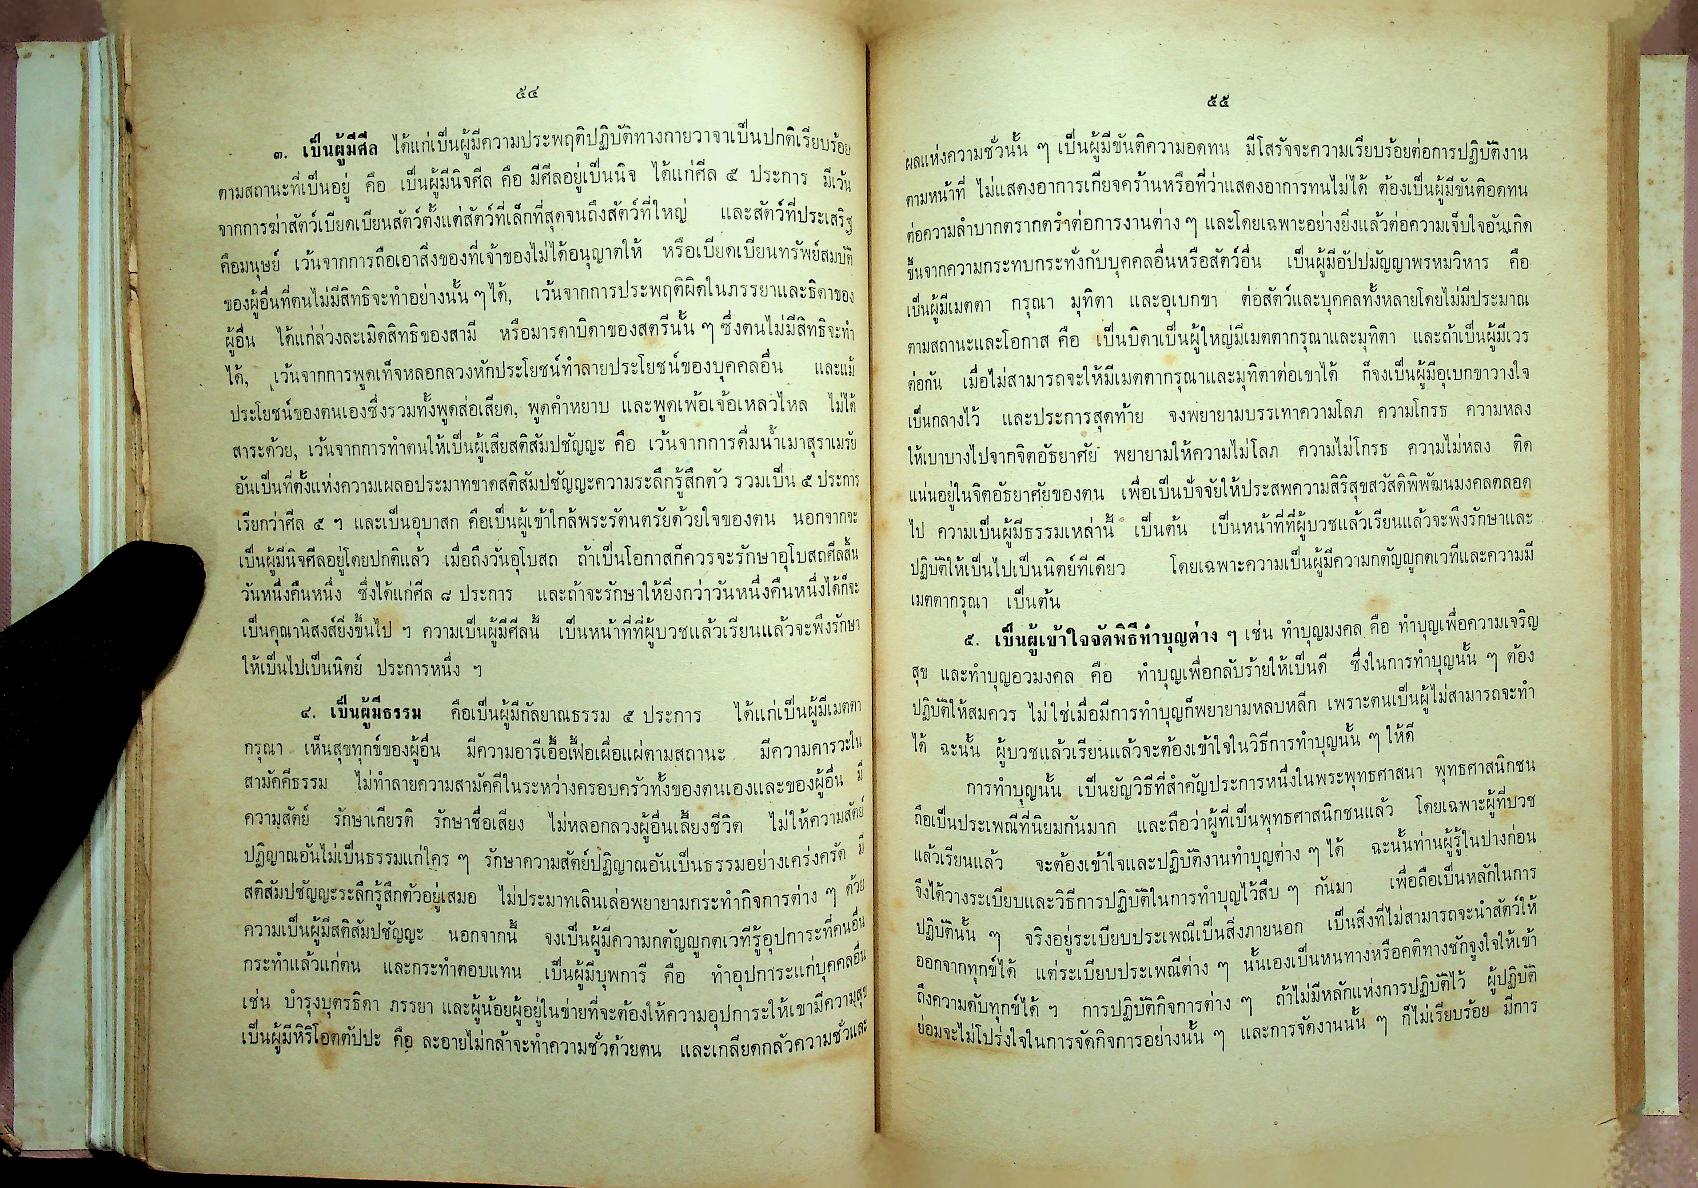 ๕๔
๓. เป็นผู้มีศีล ได้แก่เป็นผู้มีความประพฤติปฏิบัติทางกายวาจาเป็นปกติเรียบร้อย
ตามสถานะที่เป็นอยู่ คือ เป็นผู้มีนิจศีล คือ มีศีลอยู่เป็นนิจ ได้แก่ศีล ๕ ประการ มีเว้น
จากการฆ่าสัตว์เบียดเบียนสัตว์ตั้งแต่สัตว์ที่เล็กที่สุดจนถึงสัตว์ที่ใหญ่ และสัตว์ที่ประเสริฐ
คือมนุษย์ เว้นจากการถือเอาสิ่งของที่เจ้าของไม่ได้อนุญาตให้ หรือเบียดเบียนทรัพย์สมบัติ
ของผู้อื่นที่ตนไม่มีสิทธิจะทำอย่างนั้น ๆ ได้, เว้นจากการประพฤติผิดในภรรยาและธิดาของ
ผู้อื่น ได้แก่ล่วงละเมิดสิทธิของสามี หรือมารดาบิดาของสตรีนั้น ๆ ซึ่งตนไม่มีสิทธิจะทำ
ได้, เว้นจากการพูดเท็จหลอกลวงหักประโยชน์ทำลายประโยชน์ของบุคคลอื่น และแม้
ประโยชน์ของตนเองซึ่งรวมทั้งพูดส่อเสียด, พูดคำหยาบ และพูดเพ้อเจ้อเหลวไหล ไม่ได้
สาระด้วย, เว้นจากการทำตนให้เป็นผู้เสียสติสัมปชัญญะ คือ เว้นจากการดื่มน้ำเมาสุราเมรัย
อันเป็นที่ตั้งแห่งความเผลอประมาทขาดสติสัมปชัญญะความระลึกรู้สึกตัว รวมเป็น ๕ ประการ
เรียกว่าศีล ๕ ฯ และเป็นอุบาสก คือเป็นผู้เข้าใกล้พระรัตนตรัยด้วยใจของตน นอกจากจะ
เป็นผู้มีนิจศีลอยู่โดยปกติแล้ว เมื่อถึงวันอุโบสถ ถ้าเป็นโอกาสก็ควรจะรักษาอุโบสถศีลสิ้น
วันหนึ่งคืนหนึ่ง ซึ่งได้แก่ศีล ๘ ประการ และถ้าจะรักษาให้ยิ่งกว่าวันหนึ่งคืนหนึ่งได้ก็จะ
เป็นคุณานิสงส์ยิ่งขึ้นไป ฯ ความเป็นผู้มีศีลนี้ เป็นหน้าที่ที่ผู้บวชแล้วเรียนแล้วจะพึงรักษา
ให้เป็นไปเป็นนิตย์ ประการหนึ่ง ฯ
๔. เป็นผู้มีธรรม คือเป็นผู้มีกัลยาณธรรม ๕ ประการ ได้แก่เป็นผู้มีเมตตา
กรุณา เห็นสุขทุกข์ของผู้อื่น มีความอารีเอื้อเฟื้อเผื่อแผ่ตามสถานะ มีความคารวะใน
สามัคคีธรรม ไม่ทำลายความสามัคคีในระหว่างครอบครัวทั้งของตนเองและของผู้อื่น มี
ความสัตย์ รักษาเกียรติ รักษาชื่อเสียง ไม่หลอกลวงผู้อื่นเลี้ยงชีวิต ไม่ให้ความสัตย์
ปฏิญาณอันไม่เป็นธรรมแก่ใคร ๆ รักษาความสัตย์ปฏิญาณอันเป็นธรรมอย่างเคร่งครัด มี
สติสัมปชัญญะระลึกรู้สึกตัวอยู่เสมอ ไม่ประมาทเลินเล่อพยายามกระทำกิจการต่าง ๆ ด้วย
ความเป็นผู้มีสติสัมปชัญญะ นอกจากนี้ จงเป็นผู้มีความกตัญญูกตเวทีรู้อุปการะที่คนอื่น
กระทำแล้วแก่ตน และกระทำตอบแทน เป็นผู้มีบุพการี คือ ทำอุปการะแก่บุคคลอื่น
เช่น บำรุงบุตรธิดา ภรรยา และผู้น้อยผู้อยู่ในข่ายที่จะต้องให้ความอุปการะให้เขามีความสุข
เป็นผู้มีหิริโอตตัปปะ คือ ละอายไม่กล้าจะทำความชั่วด้วยตน และเกลียดกลัวความชั่วและ
๕๕
ผลแห่งความชั่วนั้น ๆ เป็นผู้มีขันติความอดทน มีโสรัจจะความเรียบร้อยต่อการปฏิบัติงาน
ตามหน้าที่ ไม่แสดงอาการเกียจคร้านหรือที่ว่าแสดงอาการทนไม่ได้ ต้องเป็นผู้มีขันติอดทน
ต่อความลำบากตรากตรำต่อการงานต่าง ๆ และโดยเฉพาะอย่างยิ่งแล้วต่อความเจ็บใจอันเกิด
ขึ้นจากความกระทบกระทั่งกับบุคคลอื่นหรือสัตว์อื่น เป็นผู้มีอัปปมัญญาพรหมวิหาร คือ
เป็นผู้มีเมตตา กรุณา มุทิตา และอุเบกขา ต่อสัตว์และบุคคลทั้งหลายโดยไม่มีประมาณ
ตามสถานะและโอกาส คือ เป็นบิดาเป็นผู้ใหญ่มีเมตตากรุณาและมุทิตา และถ้าเป็นผู้มีเวร
ต่อกัน เมื่อไม่สามารถจะให้มีเมตตากรุณาและมุทิตาต่อเขาได้ ก็จงเป็นผู้มีอุเบกขาวางใจ
เป็นกลางไว้ และประการสุดท้าย จงพยายามบรรเทาความโลภ ความโกรธ ความหลง
ให้เบาบางไปจากจิตอัธยาศัย พยายามให้ความไม่โลภ ความไม่โกรธ ความไม่หลง ติด
แน่นอยู่ในจิตอัธยาศัยของตน เพื่อเป็นปัจจัยให้ประสพความสิริสุขสวัสดิพิพัฒนมงคลตลอด
ไป ความเป็นผู้มีธรรมเหล่านี้ เป็นต้น เป็นหน้าที่ที่ผู้บวชแล้วเรียนแล้วจะพึงรักษาและ
ปฏิบัติให้เป็นไปเป็นนิตย์ทีเดียว โดยเฉพาะความเป็นผู้มีความกตัญญูกตเวทีและความมี
เมตตากรุณา เป็นต้น
๕. เป็นผู้เข้าใจจัดพิธีทำบุญต่าง ๆ เช่น ทำบุญมงคล คือ ทำบุญเพื่อความเจริญ
สุข และทำบุญอวมงคล คือ ทำบุญเพื่อกลับร้ายให้เป็นดี ซึ่งในการทำบุญนั้น ๆ ต้อง
ปฏิบัติให้สมควร ไม่ใช่เมื่อมีการทำบุญก็พยายามหลบหลีก เพราะตนเป็นผู้ไม่สามารถจะทำ
ได้ ฉะนั้น ผู้บวชแล้วเรียนแล้วจะต้องเข้าใจในวิธีการทำบุญนั้น ๆ ให้ดี
การทำบุญนั้น เป็นยัญวิธีที่สำคัญประการหนึ่งในพระพุทธศาสนา พุทธศาสนิกชน
ถือเป็นประเพณีที่นิยมกันมาก และถือว่าผู้ที่เป็นพุทธศาสนิกชนแล้ว โดยเฉพาะผู้ที่บวช
แล้วเรียนแล้ว จะต้องเข้าใจและปฏิบัติงานทำบุญต่าง ๆ ได้ ฉะนั้นท่านผู้รู้ในปางก่อน
จึงได้วางระเบียบและวิธีการปฏิบัติในการทำบุญไว้สืบ ๆ กันมา เพื่อถือเป็นหลักในการ
ปฏิบัตินั้น ๆ จริงอยู่ระเบียบประเพณีเป็นสิ่งภายนอก เป็นสิ่งที่ไม่สามารถจะนำสัตว์ให้
ออกจากทุกข์ได้ แต่ระเบียบประเพณีต่าง ๆ นั้นเองเป็นหนทางหรือคติทางชักจูงใจให้เข้า
ถึงความดับทุกข์ได้ ฯ การปฏิบัติกิจการต่าง ๆ ถ้าไม่มีหลักแห่งการปฏิบัติไว้ ผู้ปฏิบัติ
ย่อมจะไม่โปร่งใจในการจัดกิจการอย่างนั้น ๆ และการจัดงานนั้น ๆ ก็ไม่เรียบร้อย มีการ